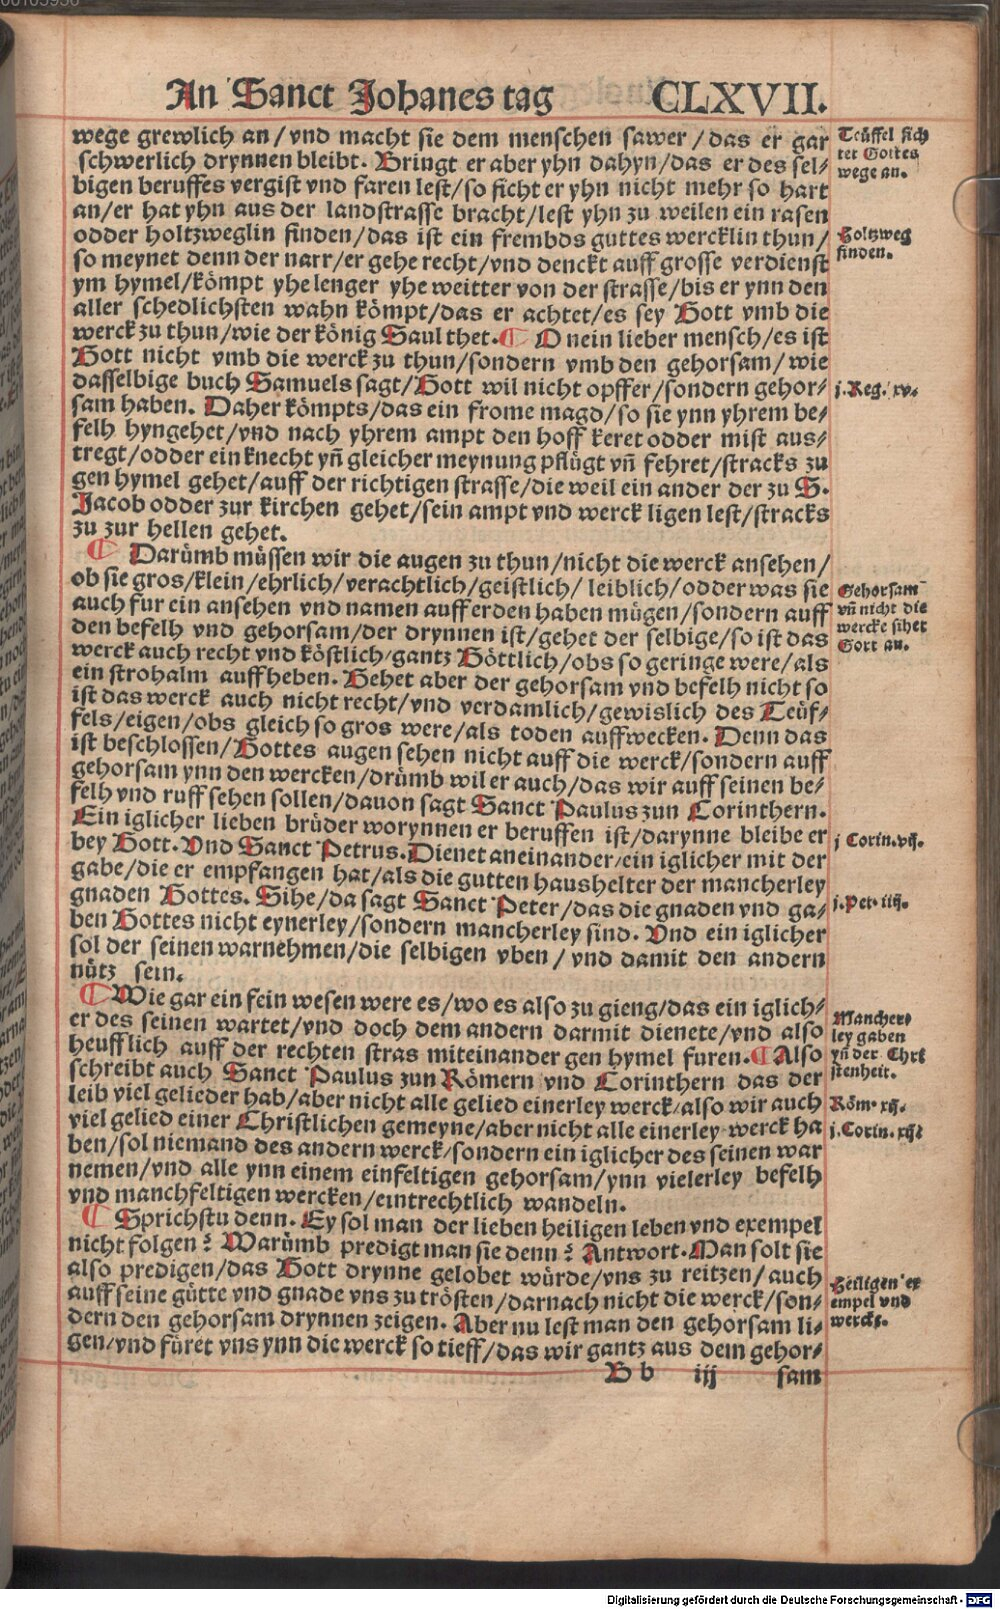 An Sanct Johanes tag CLXVII.
wege grewlich an/vnd macht sie dem menschen sawer/das er gar
schwerlich drynnen bleibt. Bringt er aber yhn dahyn/das er des sel-
bigen beruffes vergist vnd faren lest/so ficht er yhn nicht mehr so hart
an/er hat yhn aus der landstrasse bracht/lest yhn zu weilen ein rasen
odder holtzweglin finden/das ist ein frembds guttes wercklin thun/
so meynet denn der narr/er gehe recht/vnd denckt auff grosse verdienst
ym hymel/kömpt yhe lenger yhe weitter von der strasse/bis er ynn den
aller schedlichsten wahn kömpt/das er achtet/es sey Gott vmb die
werck zu thun/wie der könig Saul thet. ¶ O nein lieber mensch/es ist
Gott nicht vmb die werck zu thun/sondern vmb den gehorsam/wie
dasselbige buch Samuels sagt/Gott wil nicht opffer/sondern gehor-
sam haben. Daher kömpts/das ein frome magd/so sie ynn yhrem be-
felh hyngehet/vnd nach yhrem ampt den hoff keret odder mist aus-
tregt/odder ein knecht yñ gleicher meynung pflügt vñ fehret/stracks zu
gen hymel gehet/auff der richtigen strasse/die weil ein ander der zu S.
Jacob odder zur kirchen gehet/sein ampt vnd werck ligen lest/stracks
zu zur hellen gehet.
¶ Darümb müssen wir die augen zu thun/nicht die werck ansehen/
ob sie gros/klein/ehrlich/verachtlich/geistlich/leiblich/odder was sie
auch fur ein ansehen vnd namen auff erden haben mügen/sondern auff
den befelh vnd gehorsam/der drynnen ist/gehet der selbige/so ist das
werck auch recht vnd köstlich/gantz Göttlich/obs so geringe were/als
ein strohalm auffheben. Gehet aber der gehorsam vnd befelh nicht so
ist das werck auch nicht recht/vnd verdamlich/gewislich des Teüf-
fels/eigen/obs gleich so gros were/als toden auffwecken. Denn das
ist beschlossen/Gottes augen sehen nicht auff die werck/sondern auff
gehorsam ynn den wercken/drümb wil er auch/das wir auff seinen be-
felh vnd ruff sehen sollen/dauon sagt Sanct Paulus zun Corinthern.
Ein iglicher lieben brüder worynnen er beruffen ist/darynne bleibe er
bey Gott. Vnd Sanct Petrus. Dienet aneinander/ein iglicher mit der
gabe/die er empfangen hat/als die gutten haushelter der mancherley
gnaden Gottes. Sihe/da sagt Sanct Peter/das die gnaden vnd ga-
ben Gottes nicht eynerley/sondern mancherley sind. Vnd ein iglicher
sol der seinen warnehmen/die selbigen vben/vnd damit den andern
nütz sein.
¶ Wie gar ein fein wesen were es/wo es also zu gieng/das ein iglich-
er des seinen wartet/vnd doch dem andern darmit dienete/vnd also
heufflich auff der rechten stras miteinander gen hymel furen. ¶ Also
schreibt auch Sanct Paulus zun Römern vnd Corinthern das der
leib viel gelieder hab/aber nicht alle gelied einerley werck/also wir auch
viel gelied einer Christlichen gemeyne/aber nicht alle einerley werck ha
ben/sol niemand des andern werck/sondern ein iglicher des seinen war
nemen/vnd alle ynn einem einfeltigen gehorsam/ynn vielerley befelh
vnd manchfeltigen wercken/eintrechtlich wandeln.
¶ Sprichstu denn. Ey sol man der lieben heiligen leben vnd exempel
nicht folgen? Warümb predigt man sie denn? Antwort. Man solt sie
also predigen/das Gott drynne gelobet würde/vns zu reitzen/auch
auff seine gütte vnd gnade vns zu trösten/darnach nicht die werck/son-
dern den gehorsam drynnen zeigen. Aber nu lest man den gehorsam li-
gen/vnd füret vns ynn die werck so tieff/das wir gantz aus dem gehor-
B b iij sam
Teüffel fich
tet Gottes
wege an.
Holtzweg
finden.
j. Reg. xv.
Gehorsam
vñ nicht die
wercke sihet
Gott an.
j Corin. vij.
j. Pet. iiij.
Mancher-
ley gaben
yñ der Chri
stenheit.
Röm. xij.
j. Corin. xij.
Heiligen ex
empel vnd
wercke.
Digitalisierung gefördert durch die Deutsche Forschungsgemeinschaft - DFG